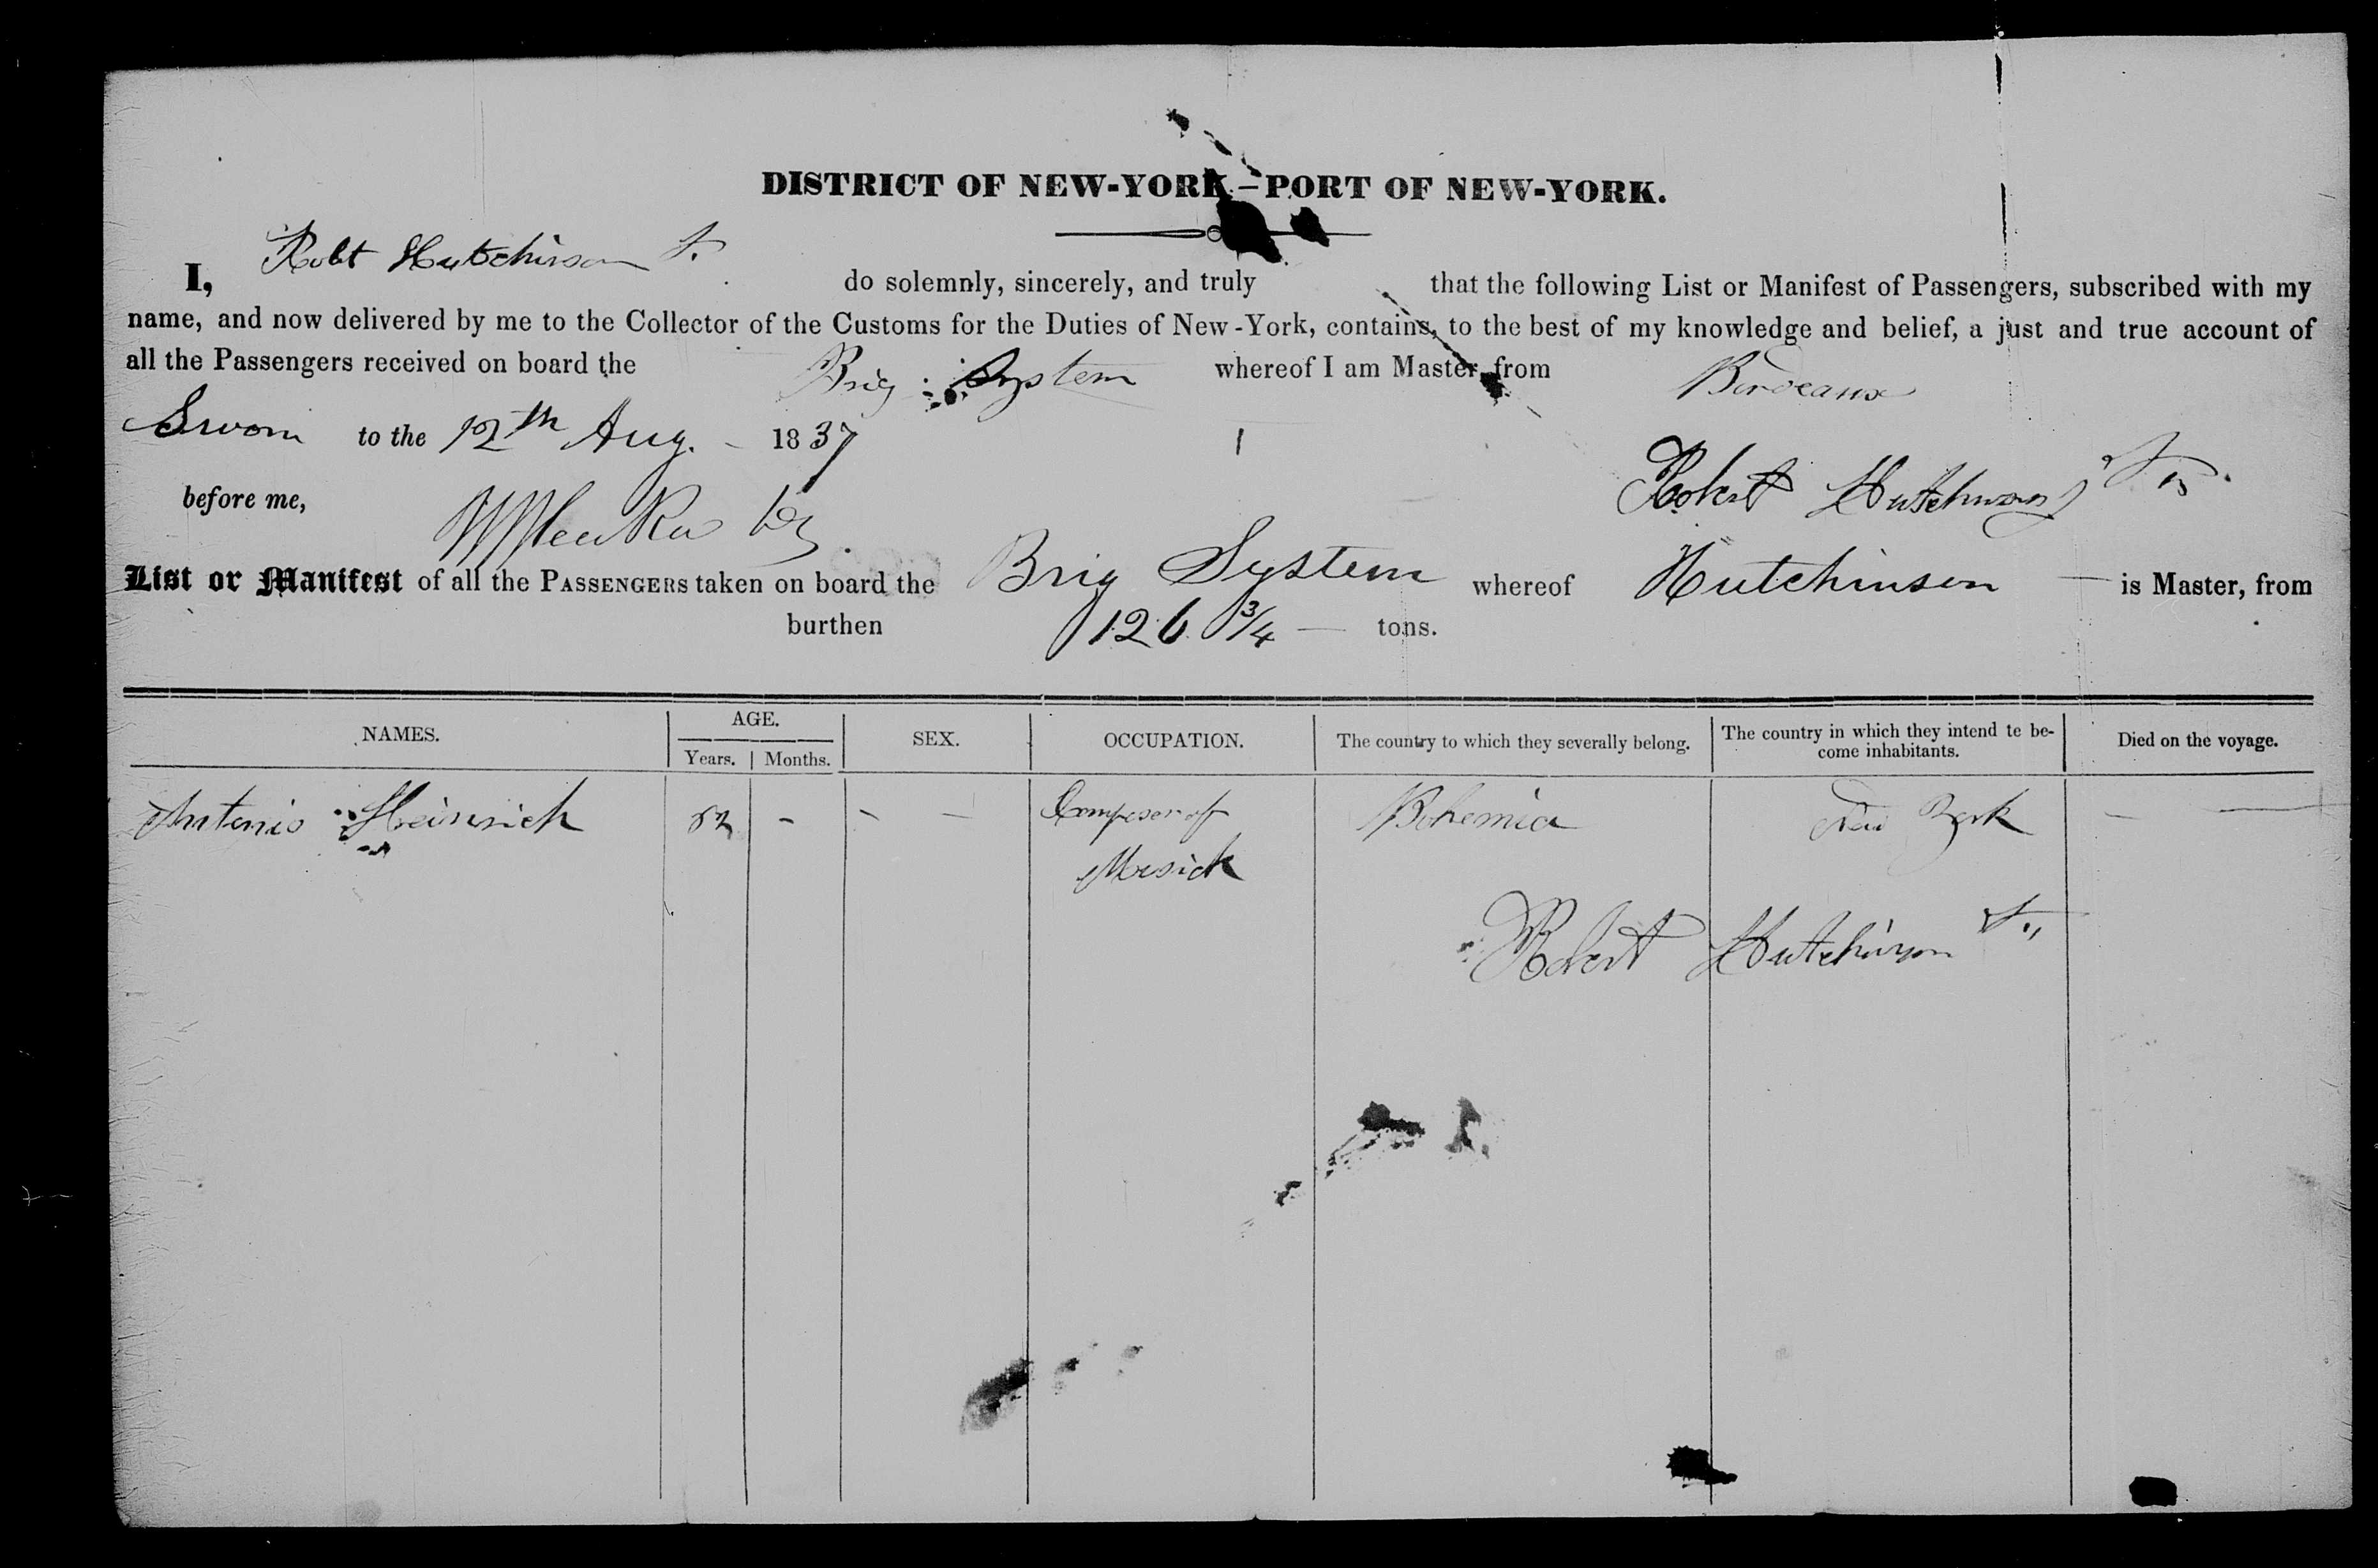 DISTRICT OF NEW-YORK—PORT OF NEW-YORK.
I, Robt Hutchinson Jr. do solemnly, sincerely, and truly that the following List or Manifest of Passengers, subscribed with my
name, and now delivered by me to the Collector of the Customs for the Duties of New-York, contains, to the best of my knowledge and belief, a just and true account of
all the Passengers received on board the Brig System whereof I am Master, from Bordeaux
Sworn to the 12th Aug. 1837
Robert Hutchinson Jr.
before me,
List or Manifest of all the PASSENGERS taken on board the Brig System whereof Hutchinson — is Master, from
burthen 126 3/4 — tons.
NAMES. AGE. SEX. OCCUPATION. The country to which they severally belong. The country in which they intend te be-come inhabitants. Died on the voyage.
Years. Months.
Antonio Heinrich 52 - - - Composer of Bohemia New York - —
Musick
Robert Hutchinson Jr.